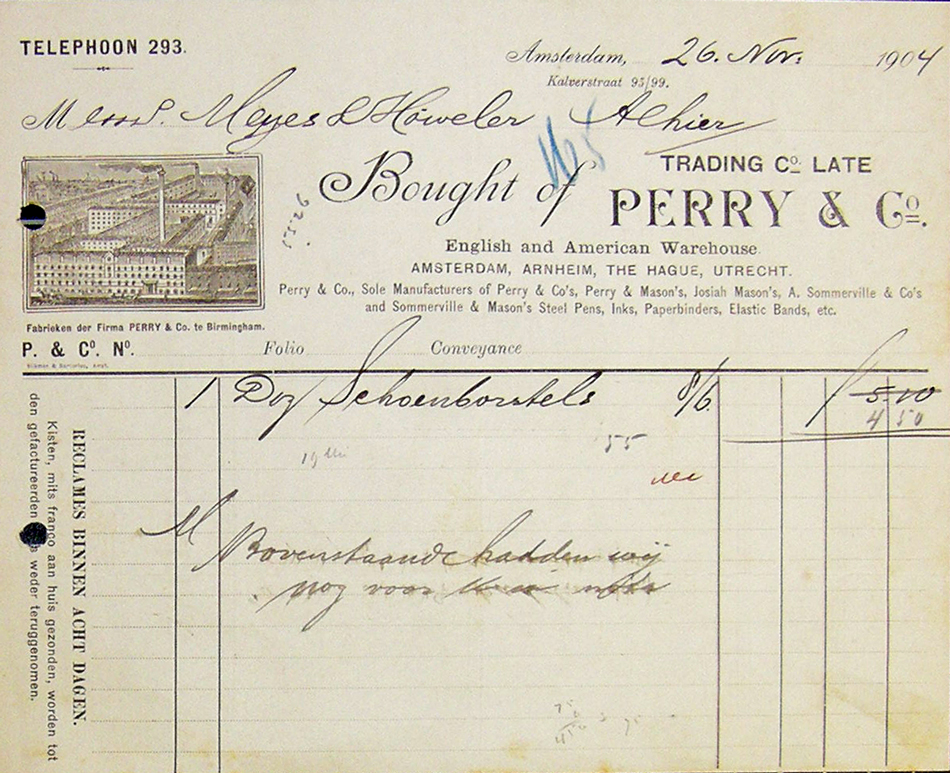 TELEPHOON 293.
Amsterdam, 26. Nov. 1904
Kalverstraat 95/99.
Messrs. Meyes & Höweler Alhier
Bought of
TRADING Co. LATE
PERRY & Co.
English and American Warehouse.
AMSTERDAM, ARNHEIM, THE HAGUE, UTRECHT.
Perry & Co., Sole Manufacturers of Perry & Co's, Perry & Mason's, Josiah Mason's, A. Sommerville & Co's
and Sommerville & Mason's Steel Pens, Inks, Paperbinders, Elastic Bands, etc.
Fabrieken der Firma PERRY & Co. te Birmingham.
P. & Co. No. Folio Conveyance
1 Doz Schoenborstels 8/6 5.00
4 50
55
Bovenstaande hadden wij
nog voor
RECLAMES BINNEN ACHT DAGEN.
Kisten, mits franco aan huis gezonden, worden tot
den gefactureerden weder teruggenomen.